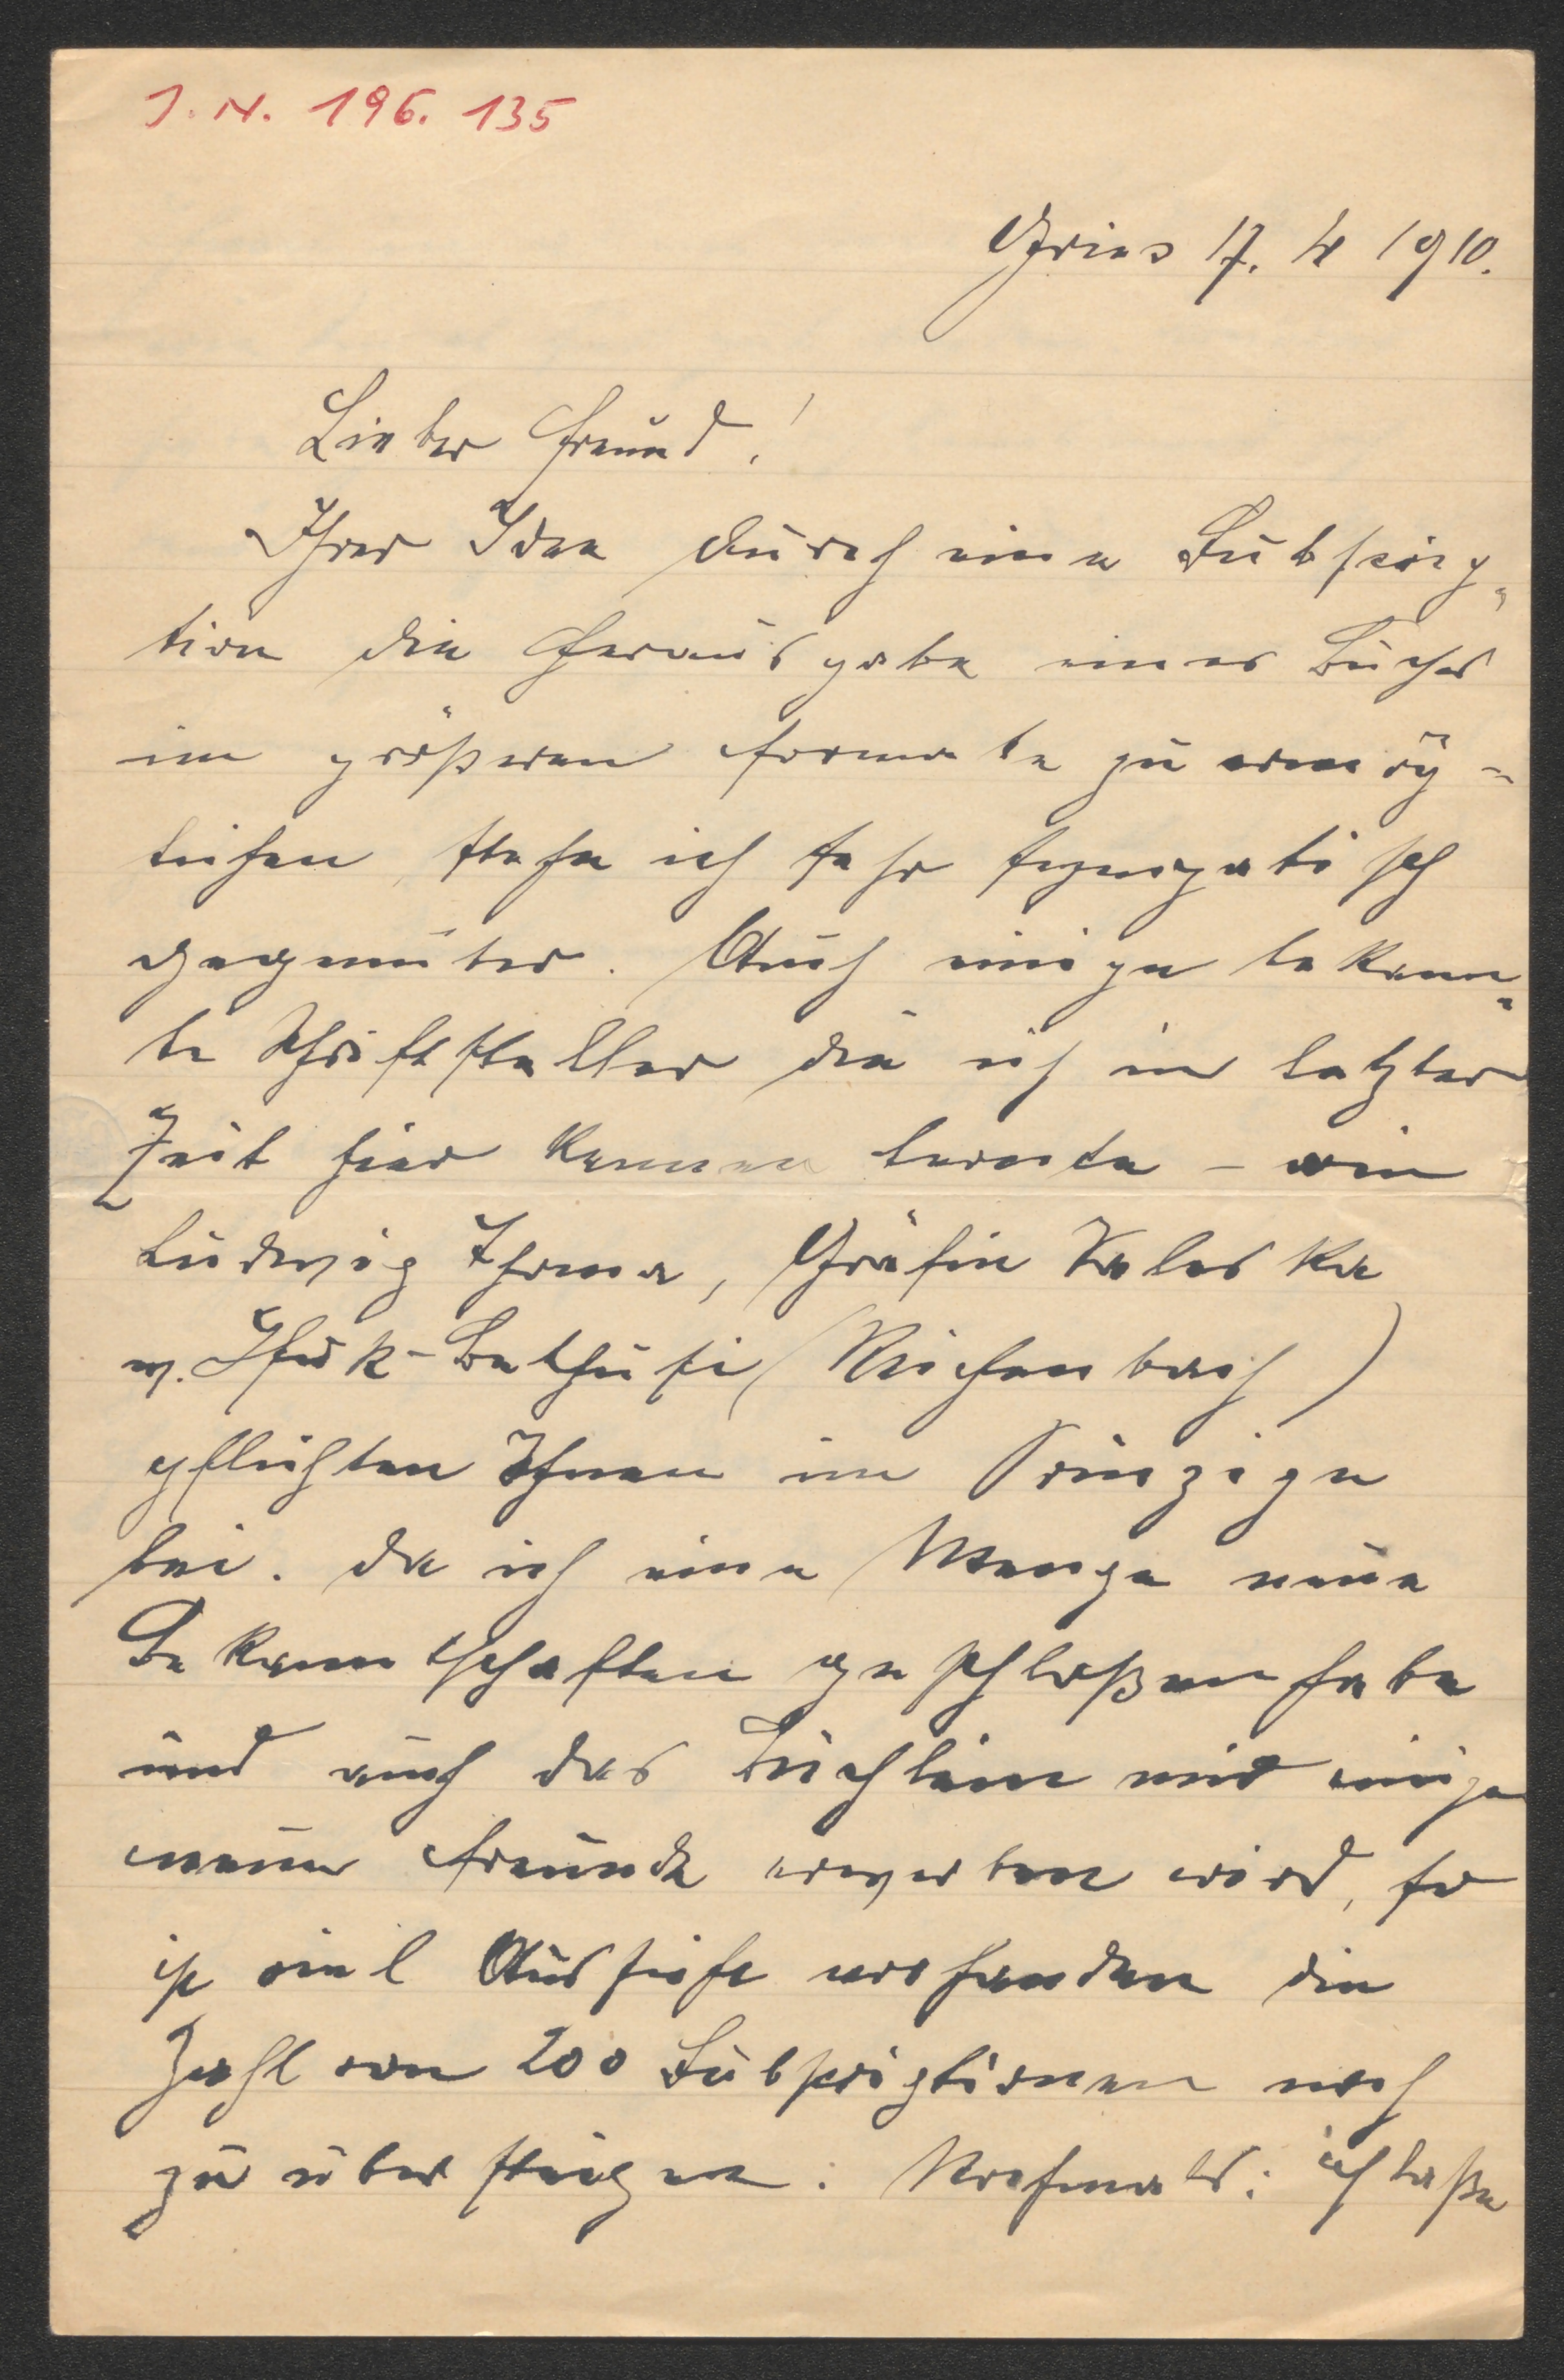 J. N. 196. 135
Gries 17. IV 1910.
Lieber Freund!
Ihrer Idee durch eine Subskrip-
tion die Herausgabe eines Buches
im größeren Formate zu ermög-
lichen, stehe ich sehr sympatisch
gegenüber. Auch einige bekann-
te Schriftsteller die ich in letzter
Zeit hier kennen lernte – wie
Ludwig Thoma, Gräfin Valeska
v. Bethusi (Reichenbach)
pflichten Ihnen im Prinzipe
bei. Da ich eine Menge neue
Bekanntschaften geschloßen habe
und auch das Büchlein mir einige
neue Freunde erwerben wird, so
ist viel Aussicht vorhanden die
Zahl von 200 Subskriptionen noch
zu übersteigen. Nochmals: ich laße